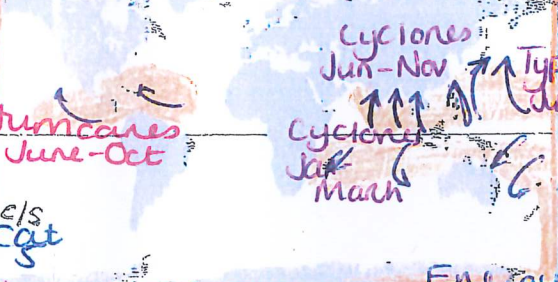 Cyclones
Jun-Nov
Typ
Ju
Hurricanes
June-Oct
Cyclones
Jan
March
c/s
Cat
5